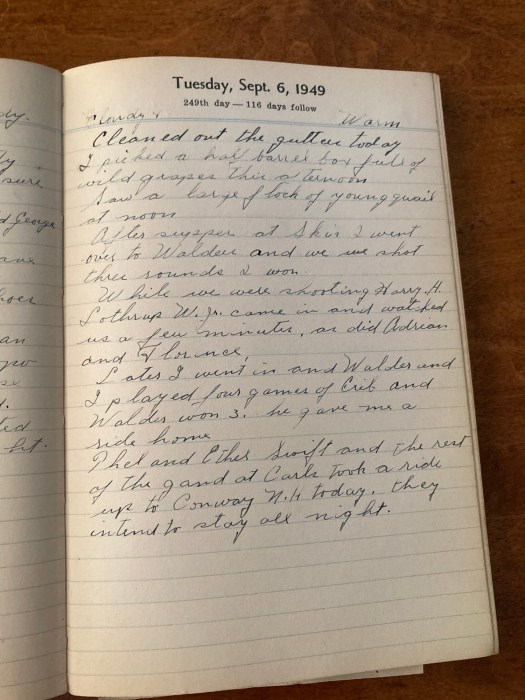 Tuesday, Sept. 6, 1949
249th day — 116 days follow
Cloudy & Warm
Cleaned out the gutter today
I picked a half barrel box full of
wild grapes this afternoon
Saw a large flock of young quail
at noon
After supper at I went
over to Walden and we we shot
three rounds I won
While we were shooting Harry H.
Lothrup W. Jr. came in and watched
us a few minutes, as did Adrian
and Florence,
Later I went in and Walder and
I played four games of Crib and
Walder won 3. he gave me a
ride home
Thel and Ethel Swift and the rest
of the gand at Carls took a ride
up to Conway N.H today. they
intend to stay all night.
dy.
ty
sure
d George
ave
hoes
an
po
se
d.
ted
ht.